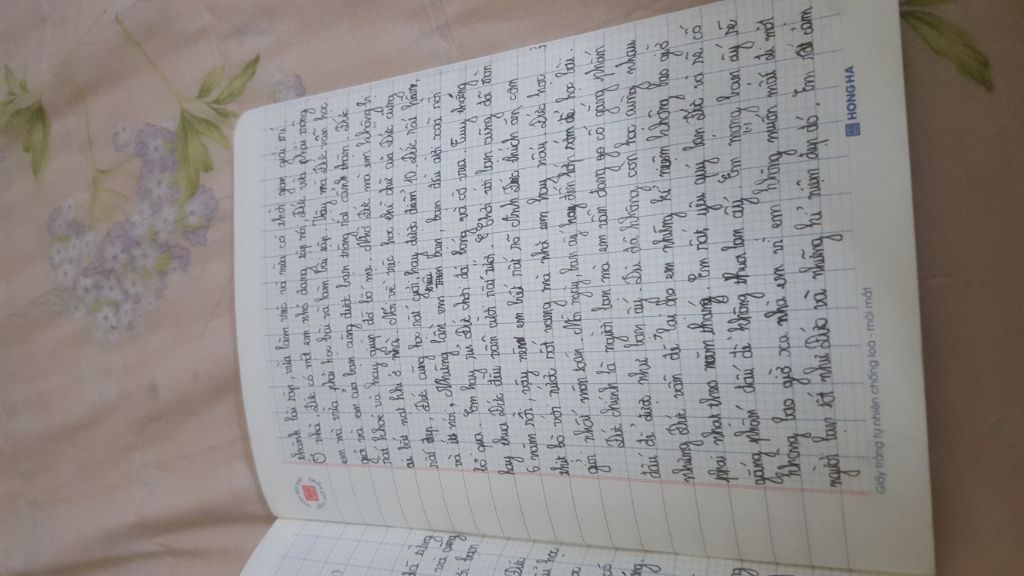 nhanh lại gọn vừa làm việc vừa có thời gian giải trí.
Ở nhà Đức có một em nhỏ đang tập nói, Đức vừa phải trông
em mà vừa phải học bài và làm bài tập. Vậy mà Đức vẫn học
giỏi và em của bạn cũng được bạn trông rất cẩn thận. Đức
rất khoẻ và hay giúp đỡ bố mẹ. Nhờ Đức mà em không bị
ai bắt nạt khi ở nhà. Nói về việc học thì chữ của Đức cũng
rất đẹp. Đức cũng học rất giỏi, hay được điểm 10. Đức rất hiền
và ít nói. Những lần em trêu bạn, bạn đều xoà rồi
bỏ qua. Em hay rủ Đức chơi đá bóng và cờ vua. Tuy thường
hay thua Đức đều vẫn cười rất tươi. Chơi với bạn cũng đã đến
6 năm rồi, vậy nên em biết rất rõ tính Đức thích ăn, cơm
thịt bò với nước rất vang mà nhà em hay nấu. Đức học
giỏi nhất môn toán. Mỗi ngày, bạn ấy hay đến lớp sớm để học bài.
Đức chính là người bạn mà em vẫn đang cố gắng phấn
đấu để được như bạn ấy. Dù đã không còn học cùng nhau
nhưng Đức vẫn để lại cho em những kỉ niệm không bao giờ
phai nhạt theo năm tháng. Em rất yêu quý bạn Đức và sẽ cố
gắng phấn đấu để không thua bạn ấy. Em mong bạn ấy sẽ
không bao giờ xa nhà em vì em không muốn mất đi một
người bạn tốt như Đức và những kỉ niệm đẹp đó. Em rất cảm
Giấy trắng tự nhiên chống loá - mỏi mắt
HONG HA